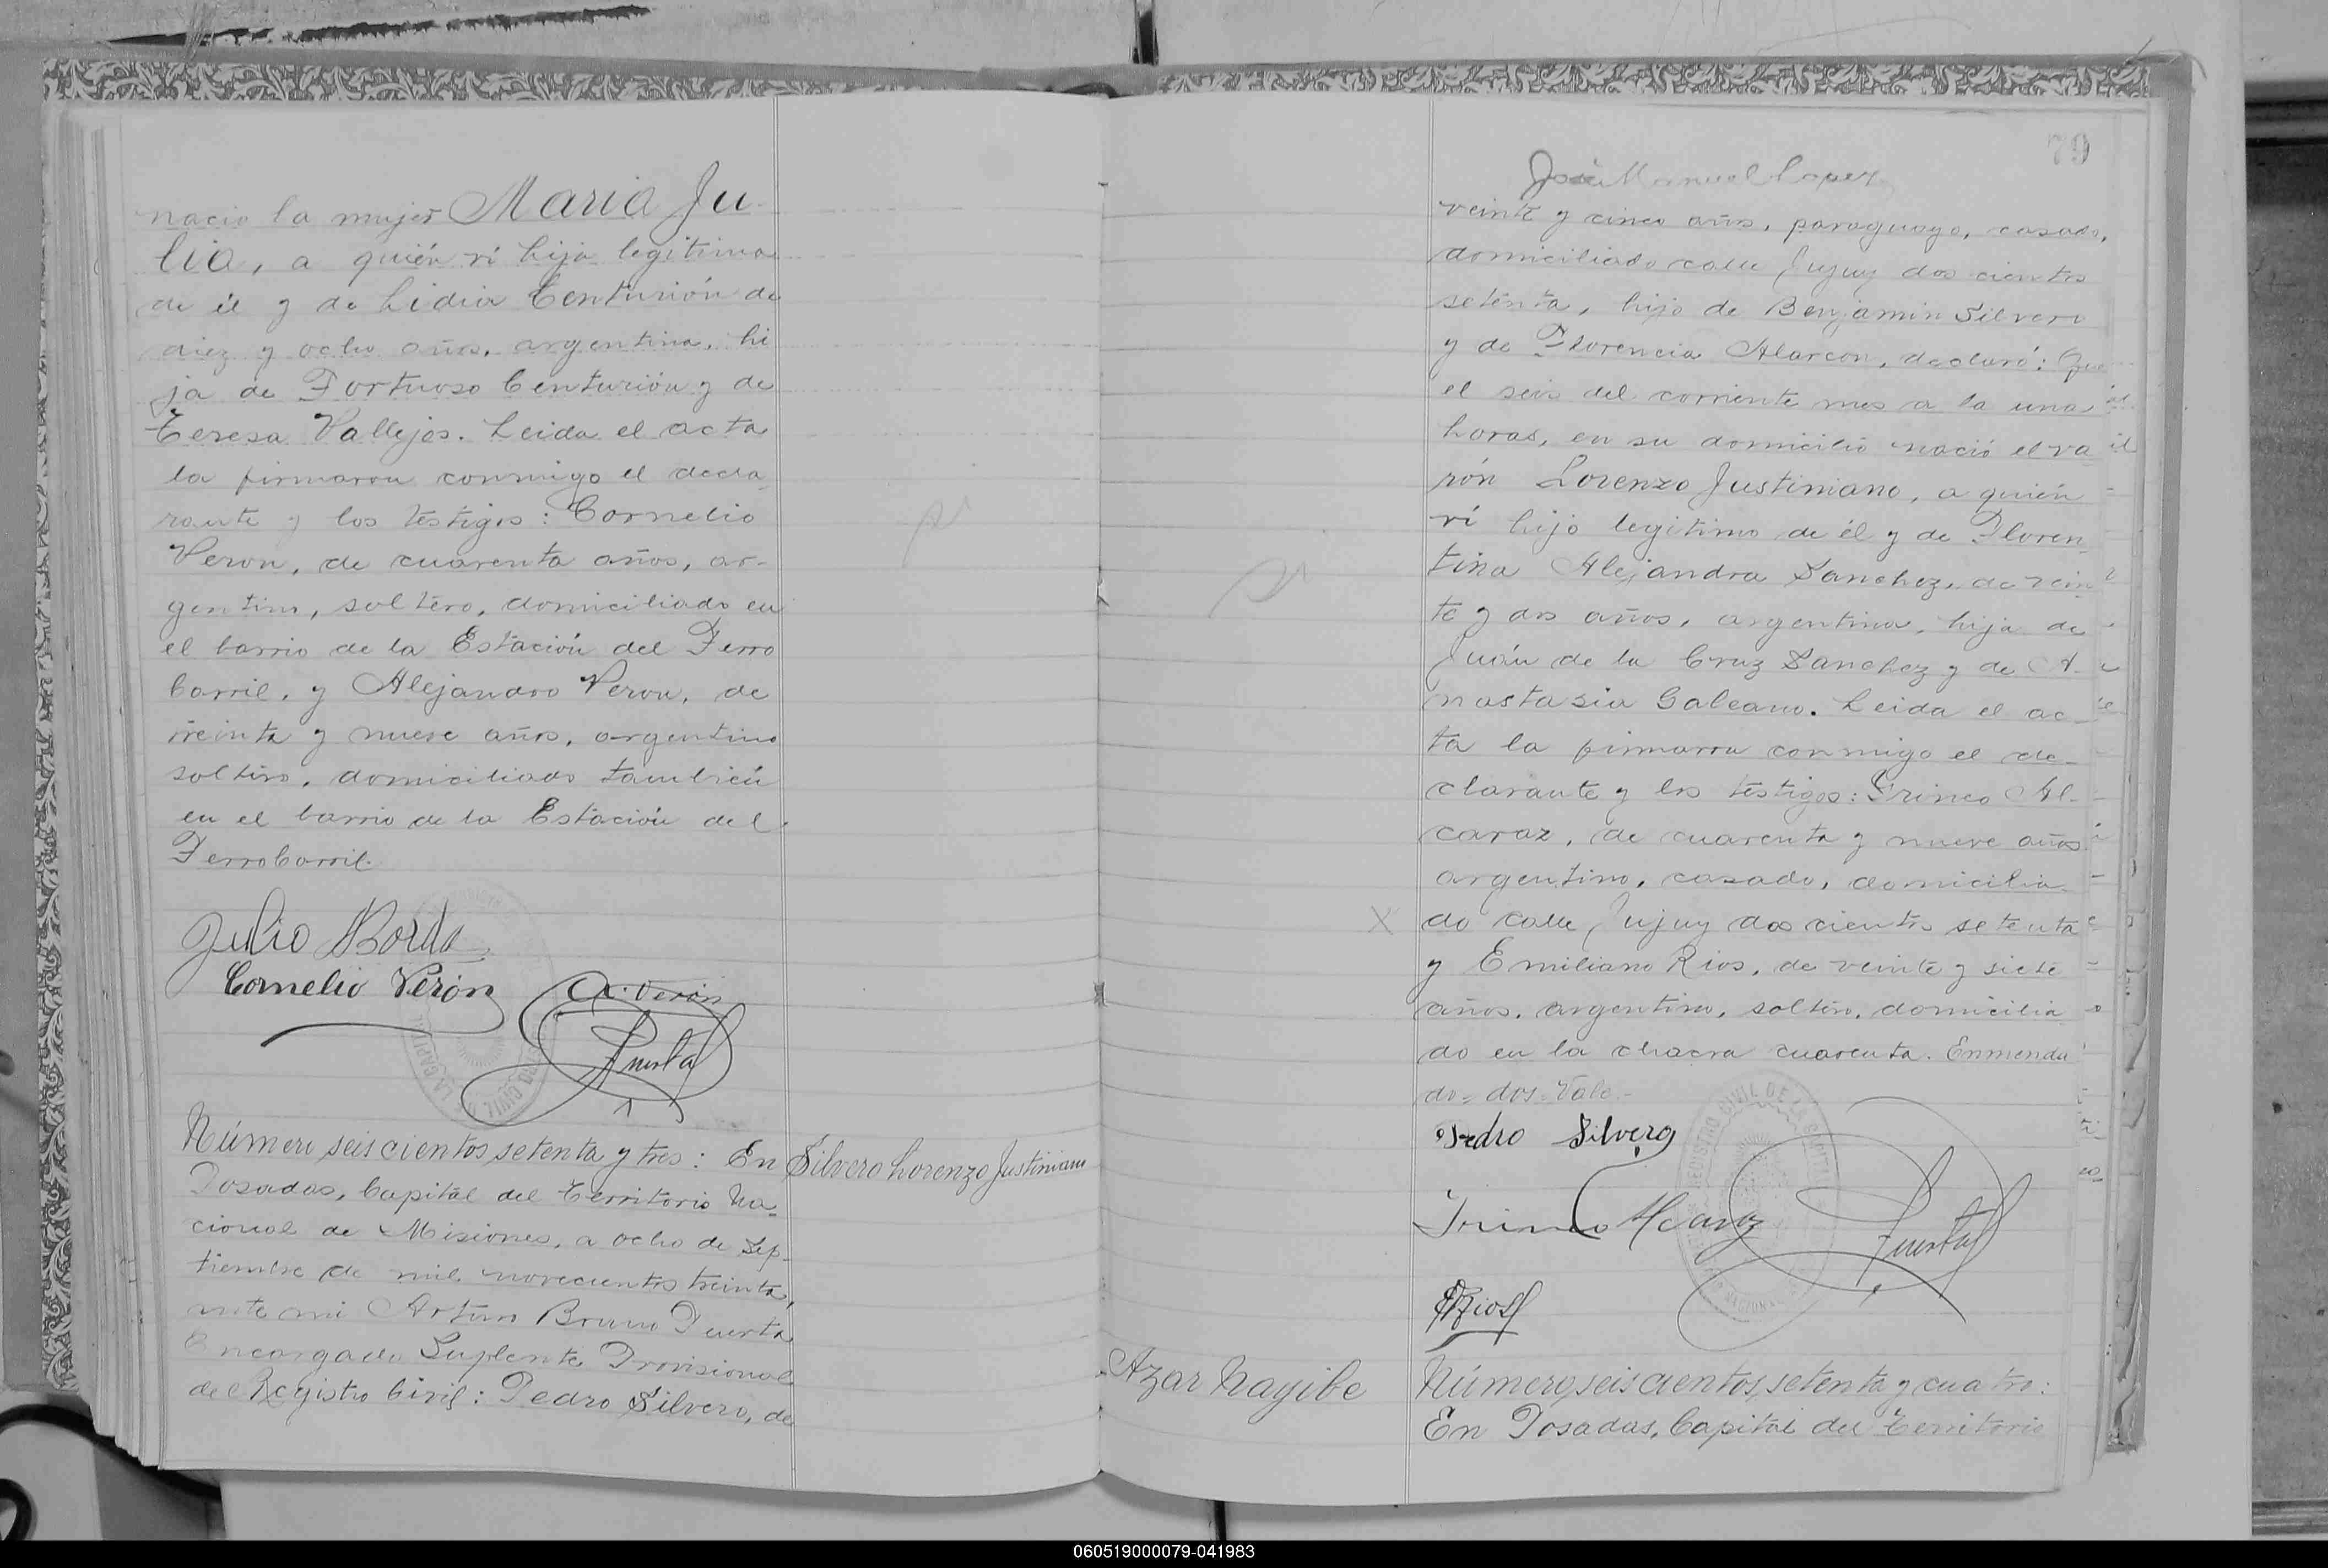 nacio la mujer Maria Ju-
lia, a quién ví hija legitima
de él y de Lidia Centurión de
diez y ocho años, argentina, hi
ja de Fortuoso Centurión y de
Teresa Vallejos. Leida el acta
la firmaron conmigo el decla
rante y los testigos: Cornelio
Veron, de cuarenta años, ar-
gentino, soltero, domiciliado en
el barrio de la Estación del Ferro
Carril, y Alejandro Veron, de
treinta y nueve años, argentino
soltero, domiciliado también
en el barrio de la Estación del
FerroCarril.
Julio Borda
Cornelio Verón
A. Verón
Puerta
Número seis cientos setenta y tres: En
Silvero Lorenzo Justiniano
Posadas, Capital del Territorio Na-
cional de Misiones, a ocho de Sep-
tiembre de mil novecientos treinta,
ante mi Arturo Bruno Puerta
Encargado Suplente Provisional
del Registro Civil: Pedro Silvero, de
79
José Manuel Lopez
veinte y cinco años, paraguayo, casado,
domiciliado calle Jujuy dos cientos
setenta, hijo de Benjamin Silvero
y de Florencia Alarcon, declaró: Que
el seis del corriente mes a la una
horas, en su domicilio nació el va
rón Lorenzo Justiniano, a quién
ví hijo legitimo de él y de Floren
tina Alejandra Sanchez, de vein
te y dos años, argentina, hija de
Juán de la Cruz Sanchez y de A-
nastasia Galeano. Leida el ac-
ta la firmaron conmigo el de-
clarante y los testigos: Irineo Al-
caraz, de cuarenta y nueve años
argentino, casado, domicilia-
do calle Jujuy dos cientos setenta
y Emiliano Rios, de veinte y siete
años, argentino, soltero, domicilia
do en la chacra cuarenta. Enmenda
do = dos = Vale.-
Pedro Silvero
Irineo Alcaraz
Puerta
ERios
Azar Nayibe
Número seis cientos setenta y cuatro:
En Posadas, Capital del Territorio
060519000079-041983